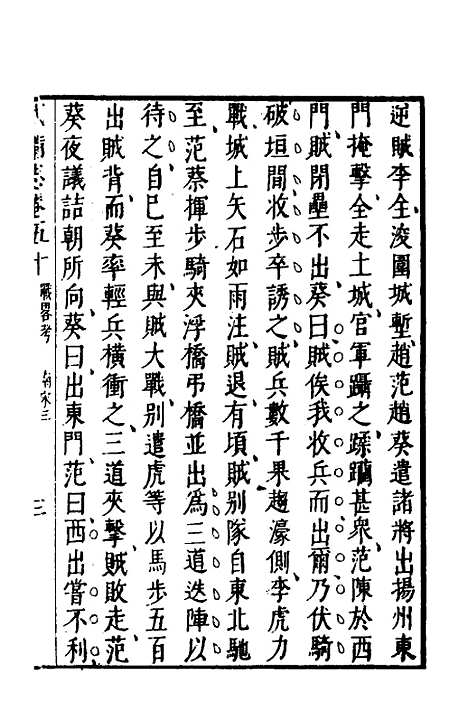 逆賊李全浚圍城塹趙范趙葵遣諸將出揚州東
門掩擊全走土城官軍躡之蹂躪甚衆范陳於西
門賊閉壘不出葵曰賊俟我收兵而出爾乃伏騎
破垣間收步卒誘之賊兵數千果趨濠側李虎力
戰城上矢石如雨注賊退有頃賊別隊自東北馳
至范蔡揮步騎夾浮橋弔橋並出爲三道迭陣以
待之自巳至未與賊大戰別遣虎等以馬步五百
出賊背而葵率輕兵橫衝之三道夾擊賊敗走范
葵夜議詰朝所向葵曰出東門范曰西出嘗不利
武備志卷五十 戰畧考 南宋三 三